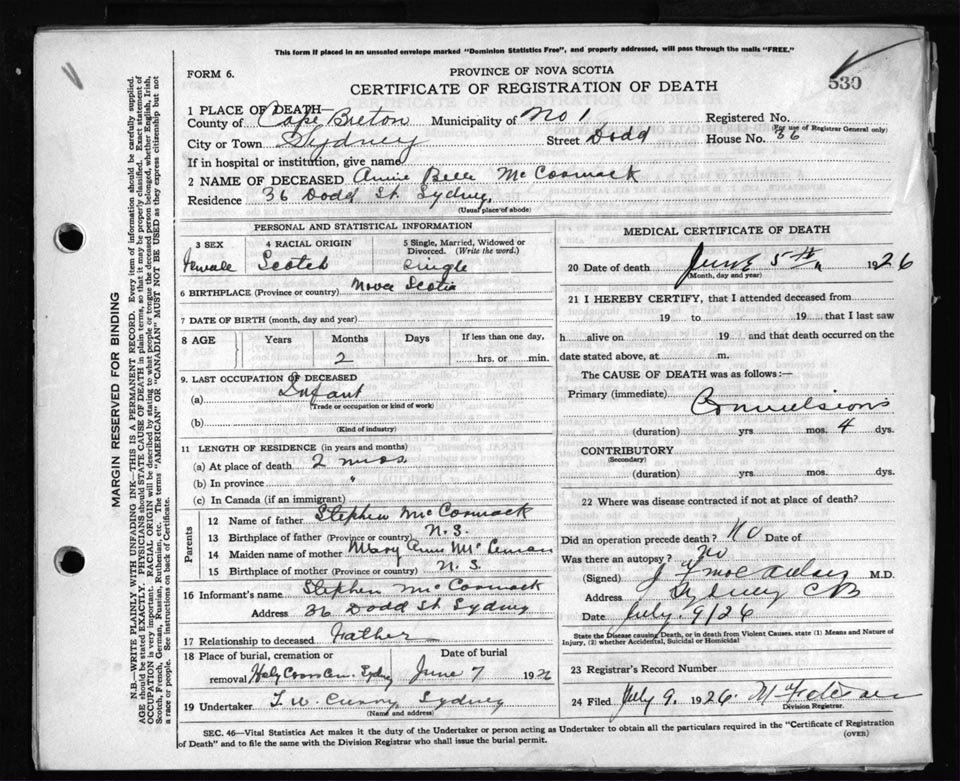 This form if placed in an unsealed envelope marked "Dominion Statistics Free", and properly addressed, will pass through the mails "FREE."
FORM 6.
PROVINCE OF NOVA SCOTIA
CERTIFICATE OF REGISTRATION OF DEATH
530
1 PLACE OF DEATH—
County of Cape Breton Municipality of No 1 Registered No.
(For use of Registrar General only)
City or Town Sydney Street Dodd House No. 36
If in hospital or institution, give name
2 NAME OF DECEASED Annie Bell McCormack
Residence 36 Dodd St. Sydney.
(Usual place of abode)
PERSONAL AND STATISTICAL INFORMATION
3 SEX 4 RACIAL ORIGIN 5 Single, Married, Widowed or Divorced. (Write the word.)
Female Scotch Single
6 BIRTHPLACE (Province or country) Nova Scotia
7 DATE OF BIRTH (month, day and year)
8 AGE Years Months Days If less than one day,
2 hrs. or min.
9. LAST OCCUPATION OF DECEASED
(a) Infant
(Trade or occupation or kind of work)
(b)
(Kind of industry)
11 LENGTH OF RESIDENCE (in years and months)
(a) At place of death 2 mos.
(b) In province "
(c) In Canada (if an immigrant)
Parents
12 Name of father Stephen McCormack
13 Birthplace of father (Province or country) N.S.
14 Maiden name of mother Mary Ann
15 Birthplace of mother (Province or country) N.S.
16 Informant's name Stephen McCormack
Address 36 Dodd St. Sydney
17 Relationship to deceased Father
18 Place of burial, cremation or removal Holy Cross Cem. Sydney
Date of burial June 7 1926
19 Undertaker T. W. Curry Sydney
(Name and address)
MEDICAL CERTIFICATE OF DEATH
20 Date of death June 5th 1926
(Month, day and year)
21 I HEREBY CERTIFY, that I attended deceased from
19 to 19 that I last saw
h alive on 19 and that death occurred on the
date stated above, at m.
The CAUSE OF DEATH was as follows:—
Primary (immediate) Convulsions
(duration) yrs. mos. 4 dys.
CONTRIBUTORY
(Secondary)
(duration) yrs. mos. dys.
22 Where was disease contracted if not at place of death?
Did an operation precede death? No Date of
Was there an autopsy? No
(Signed) M.D.
Address Sydney CB
Date July 9/26
State the Disease causing Death, or in death from Violent Causes, state (1) Means and Nature of
Injury, (2) whether Accidental, Suicidal or Homicidal
23 Registrar's Record Number
24 Filed July 9. 1926.
Division Registrar.
SEC. 46—Vital Statistics Act makes it the duty of the Undertaker or person acting as Undertaker to obtain all the particulars required in the "Certificate of Registration
of Death" and to file the same with the Division Registrar who shall issue the burial permit.
(OVER)
MARGIN RESERVED FOR BINDING
N.B.—WRITE PLAINLY WITH UNFADING INK—THIS IS A PERMANENT RECORD. Every item of information should be carefully supplied.
AGE should be stated EXACTLY. PHYSICIANS should STATE CAUSE OF DEATH in plain terms, so that it may be properly classified. Exact statement of
OCCUPATION is very important. RACIAL ORIGIN will be described by stating to what people or tongue the deceased person belonged, whether English, Irish,
Scotch, French, German, Russian, Ruthenian, etc. The terms "AMERICAN" or "CANADIAN" MUST NOT BE USED as they express citizenship but not
a race or people. See instructions on back of Certificate.